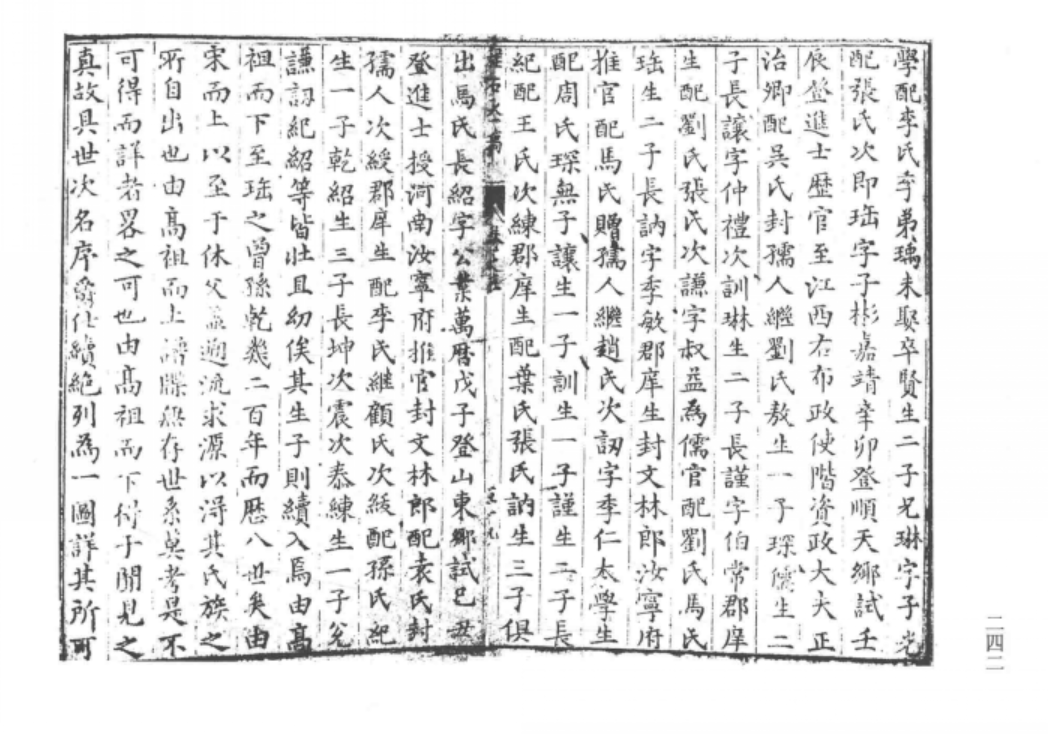 學配李氏季弟瑀未娶卒賢生二子兄琳字子光
配張氏次即珤字子彬嘉靖辛卯登順天鄉試壬
辰登進士歷官至江西右布政使階資政大夫正
治卿配吳氏封孺人繼劉氏敖生一子琛儒生二
子長讓字仲禮次訓琳生二子長謹字伯常郡庠
生配劉氏張氏次謙字叔益為儒官配劉氏馬氏
珤生二子長訥字季敏郡庠生封文林郎汝寧府
推官配馬氏贈孺人繼趙氏次訒字季仁太學生
配周氏琛無子讓生一子訓生一子謹生二子長
紀配王氏次練郡庠生配葉氏張氏訥生三子俱
出馬氏長紹字公業萬曆戊子登山東鄉試己丑
登進士授河南汝寧府推官封文林郎配袁氏封
孺人次綬郡庠生配李氏繼顧氏次緩配孫氏紀
生一子乾紹生三子長坤次震次泰練生一子兌
謙訒紀紹等皆壯且幼俟其生子則續入焉由高
祖而下至珤之曾孫乾幾二百年而歷八世矣由
宋而上以至于休父蓋遡流求源以得其氏族之
所自出也由高祖而上譜牒無存世系莫考是不
可得而詳者畧之可也由高祖而下得于聞見之
真故具世次名序爵仕續絕列為一圖詳其所可
二四二